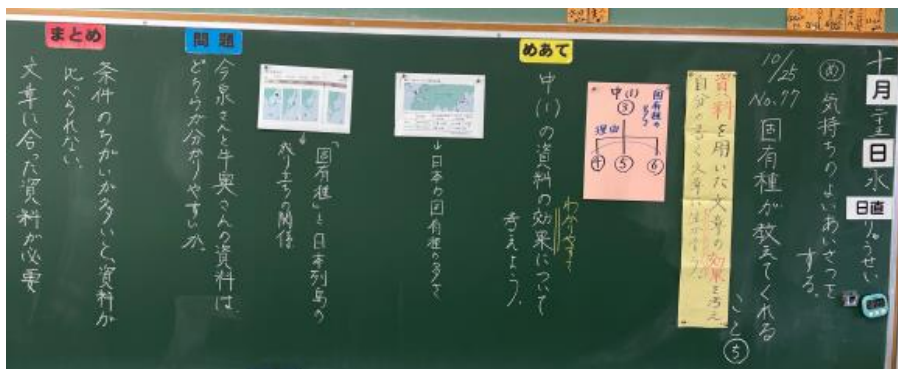 十月二十五日水
日直 りゅうせい
め 気持ちのよいあいさつを
する。
10/25
No.77 固有種が教えてくれる
こと⑤
資料を用いた文章の効果を考え、
自分の書く文章に生かそう。
固有種の
中(1)
③
理由
④ ⑤ ⑥
めあて
わかりやすさ
中(1)の資料の効果について
考えよう。
↓日本の固有種の多さ
「固有種」と日本列島の
成り立ちの関係
問題
今泉さんと牛奥さんの資料は、
どちらが分かりやすいか。
まとめ
条件のちがいが多いと、資料が
比べられない。
文章に合った資料が必要